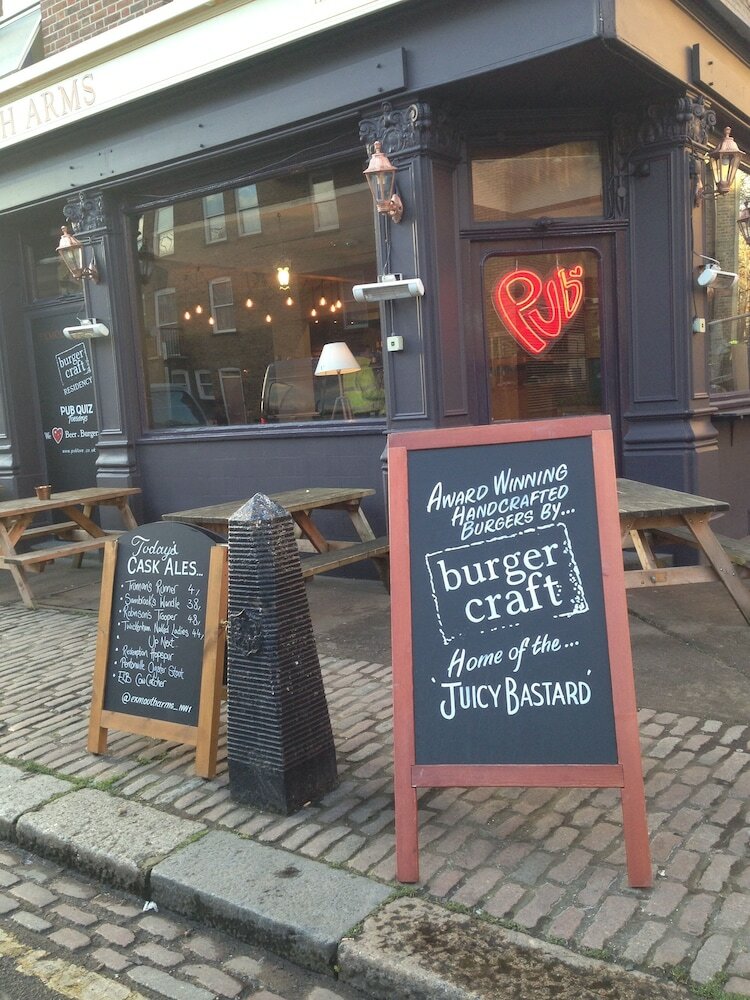 H ARMS
burger
craft
RESIDENCY
PUB QUIZ
Tuesdays
We Beer & Burger
www.publove.co.uk
Pub
Today's
CASK ALES...
Truman's Runner 4/
Sambrook's Wandle 3.8/
Robinson's Trooper 4.8/
Twickenham Naked Ladies 4.4/
Up Next...
Redemption Hopspur
Pentonville Oyster Stout
ELB Cow Catcher
@exmoutharms_NW1
AWARD WINNING
HANDCRAFTED
BURGERS BY...
burger
craft
Home of the...
'JUICY BASTARD'